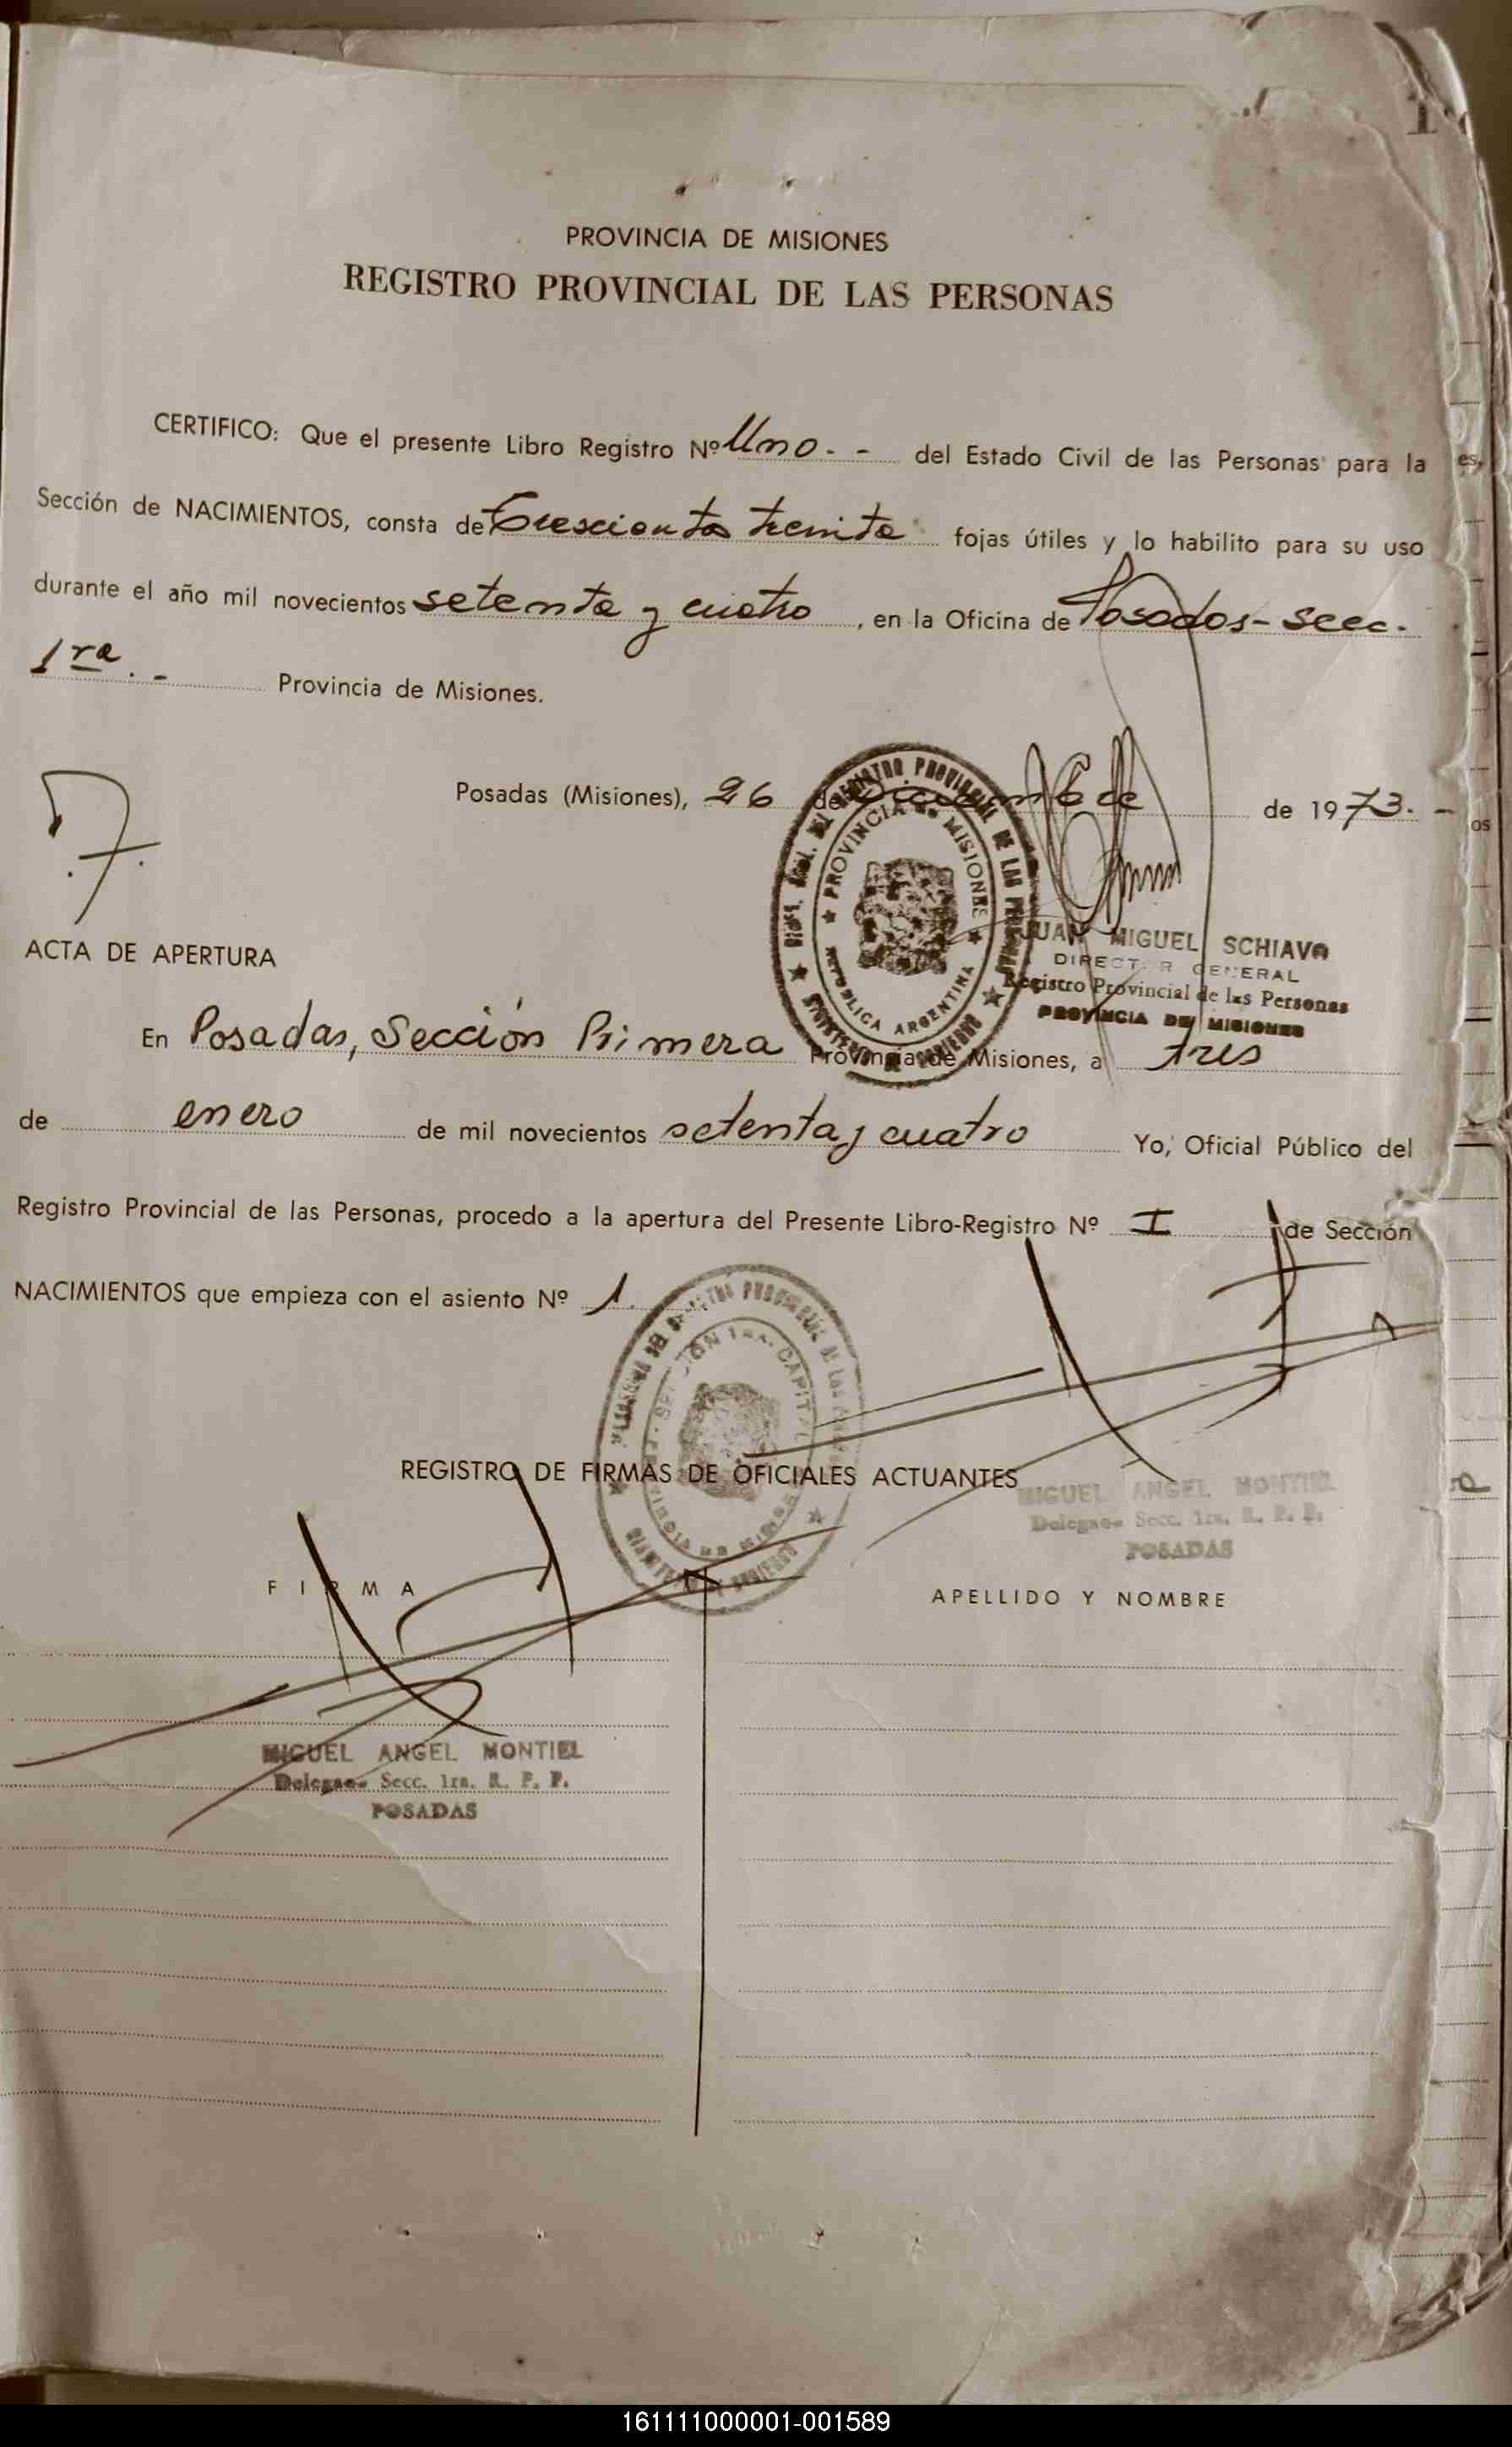 1
PROVINCIA DE MISIONES
REGISTRO PROVINCIAL DE LAS PERSONAS
CERTIFICO: Que el presente Libro Registro Nº Uno. - del Estado Civil de las Personas para la
Sección de NACIMIENTOS, consta de Trescientas treinta fojas útiles y lo habilito para su uso
durante el año mil novecientos setenta y cuatro, en la Oficina de Posadas - Secc.
1ra. - Provincia de Misiones.
Posadas (Misiones), 26 de Diciembre de 1973. -
REGISTRO PROVINCIAL DE LAS PERSONAS
PROVINCIA DE MISIONES
REPUBLICA ARGENTINA
MINISTERIO DE GOBIERNO
JUAN MIGUEL SCHIAVO
DIRECTOR GENERAL
Registro Provincial de las Personas
PROVINCIA DE MISIONES
ACTA DE APERTURA
En Posadas, Sección Primera Provincia de Misiones, a tres
de enero de mil novecientos setenta y cuatro Yo, Oficial Público del
Registro Provincial de las Personas, procedo a la apertura del Presente Libro-Registro Nº I de Sección
NACIMIENTOS que empieza con el asiento Nº 1.
REGISTRO DE FIRMAS DE OFICIALES ACTUANTES
MIGUEL ANGEL MONTIEL
Delegado Secc. 1ra. R. P. P.
POSADAS
FIRMA
APELLIDO Y NOMBRE
MIGUEL ANGEL MONTIEL
Delegado Secc. 1ra. R. P. P.
POSADAS
161111000001-001589